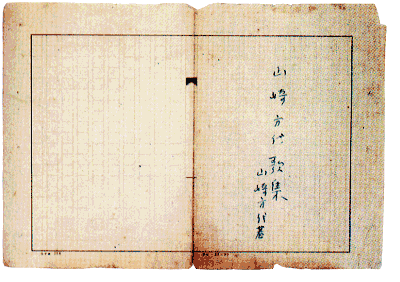 山崎方代歌集
山崎方代著